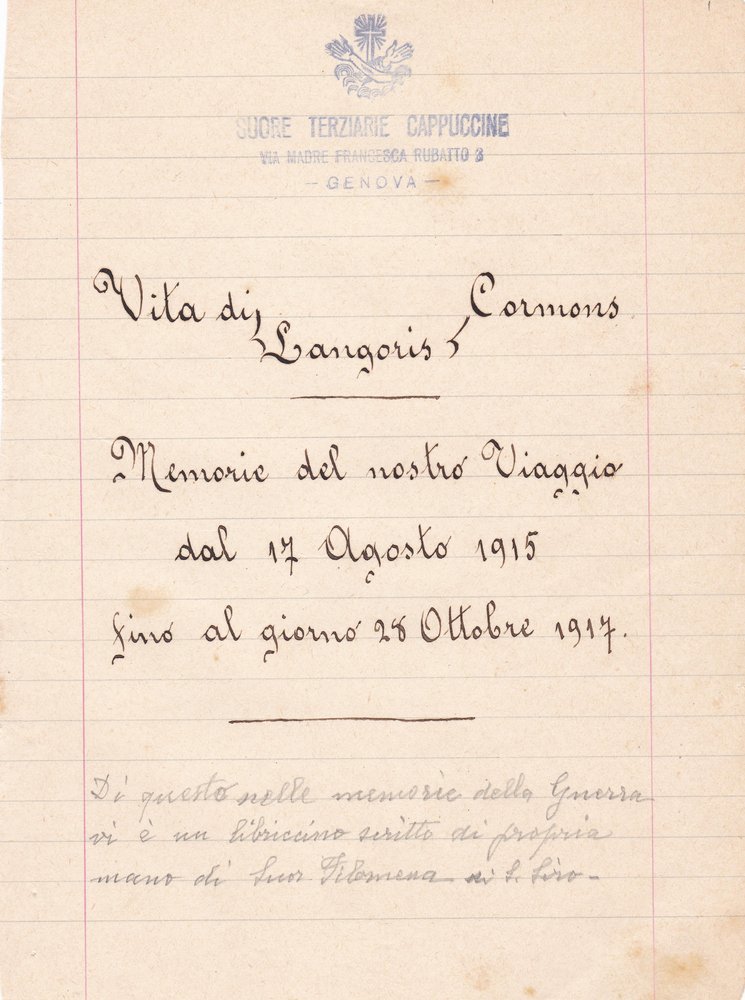 SUORE TERZIARIE CAPPUCCINE
VIA MADRE FRANCESCA RUBATTO 3
– GENOVA –
Vita di Langoris Cormons
Memorie del nostro Viaggio
dal 17 Agosto 1915
fino al giorno 28 Ottobre 1917.
Di questo nelle memorie della Guerra
vi è un libriccino scritto di propria
mano di Suor Filomena di S. Siro –